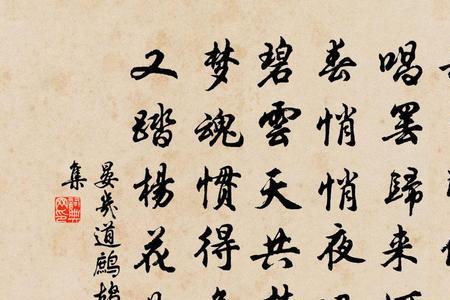 唱罷歸来
春悄悄夜
碧雲天共
梦魂慣得
又踏楊花
晏幾道鷓
集